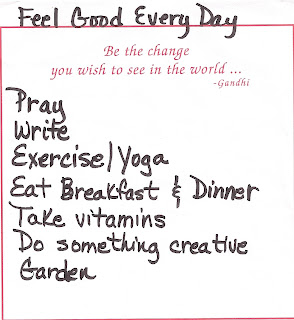 Feel Good Every Day
Be the change
you wish to see in the world ...
-Gandhi
Pray
Write
Exercise/Yoga
Eat Breakfast & Dinner
Take vitamins
Do something creative
Garden